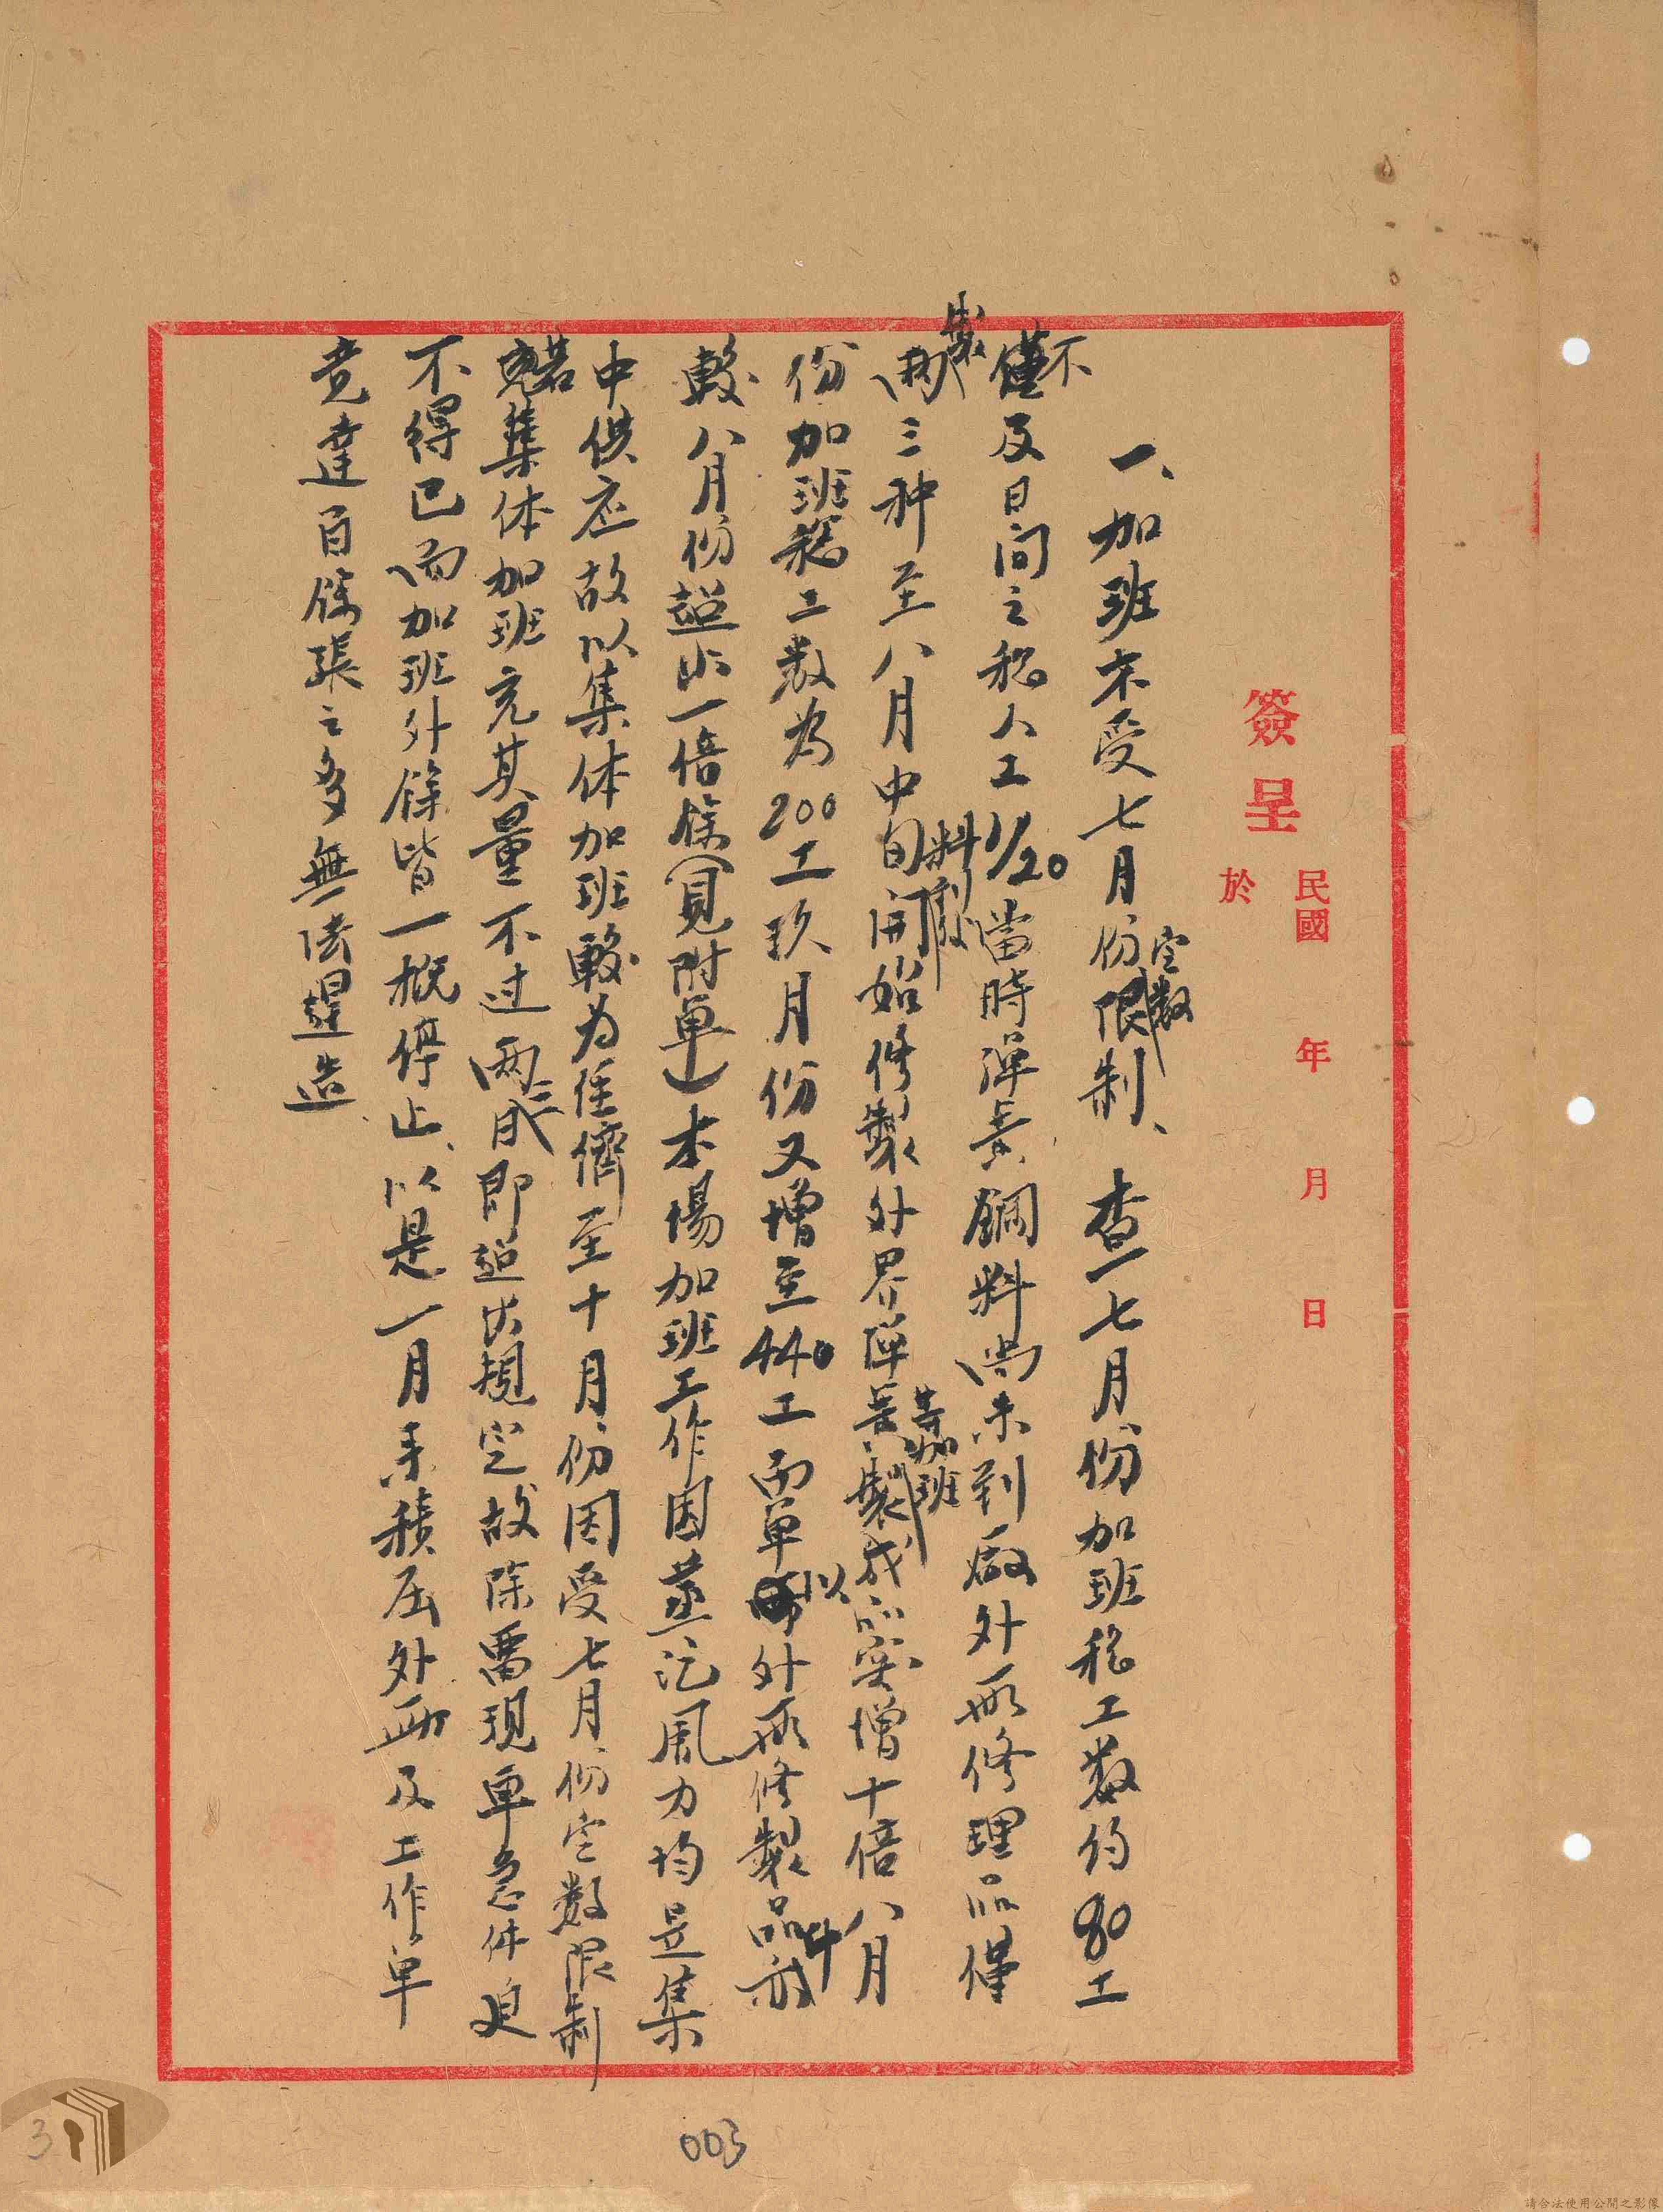 簽呈
民國 年 月 日
於
一、加班不受七月份定數限制、查七月份加班總工數約80工
不僅及日间之總人工1/20當時彈簧鋼料尚未到廠外取修理品僅
製兩三种至八月中旬料到廠開始修製外界彈簧等加班製成品突增十倍八月
份加班總工数為200工玖月份又增至440工而單以外取修製品件亦
較八月份超出一倍餘(見附單)本場加班工作因蒸汽風力均是集
中供应故以集体加班較为经濟至十月份因受七月份定數限制
若集体加班充其量不过兩三日即超出規定故除需現車急件迫
不得已而加班外餘皆一概停止、以是一月来積压外取及工作單
竟達百餘張之多無法趕造、
003
3
請合法使用公開之影像